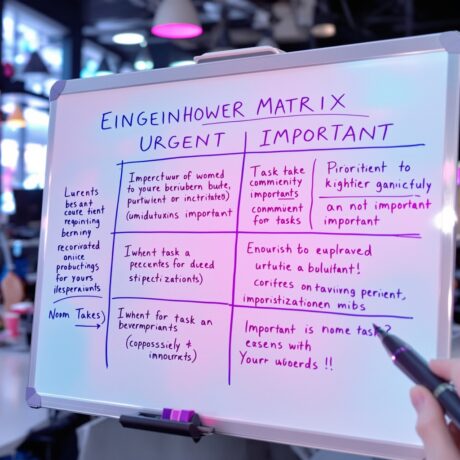 EINGEINHOWER MATRIX
URGENT
IMPORTANT
Lurents
bes an it
coure tient
regointing
berning
recorirated
onice
productings
for yours
ilesperaiunts
Noom Takes)
Imperctwur of womed
to youre beriubern bute,
purtwient or inctritates)
(umidutuxins important
Task take
commenity
importants
conmiuent
for tasks
Piroritient to
kightier ganicfuly
an not important
important
Iwhent task a
peecentes for dueed
stipectizationts)
Enourish to euplraved
urtutie a bulultant!
corifres on taviving perient,
imporistizationen mibs
Iwhent for task an
bevermpriants
(coppossiely +
innoucrats)
Important is nome task?
easens with
Your uboerds !!